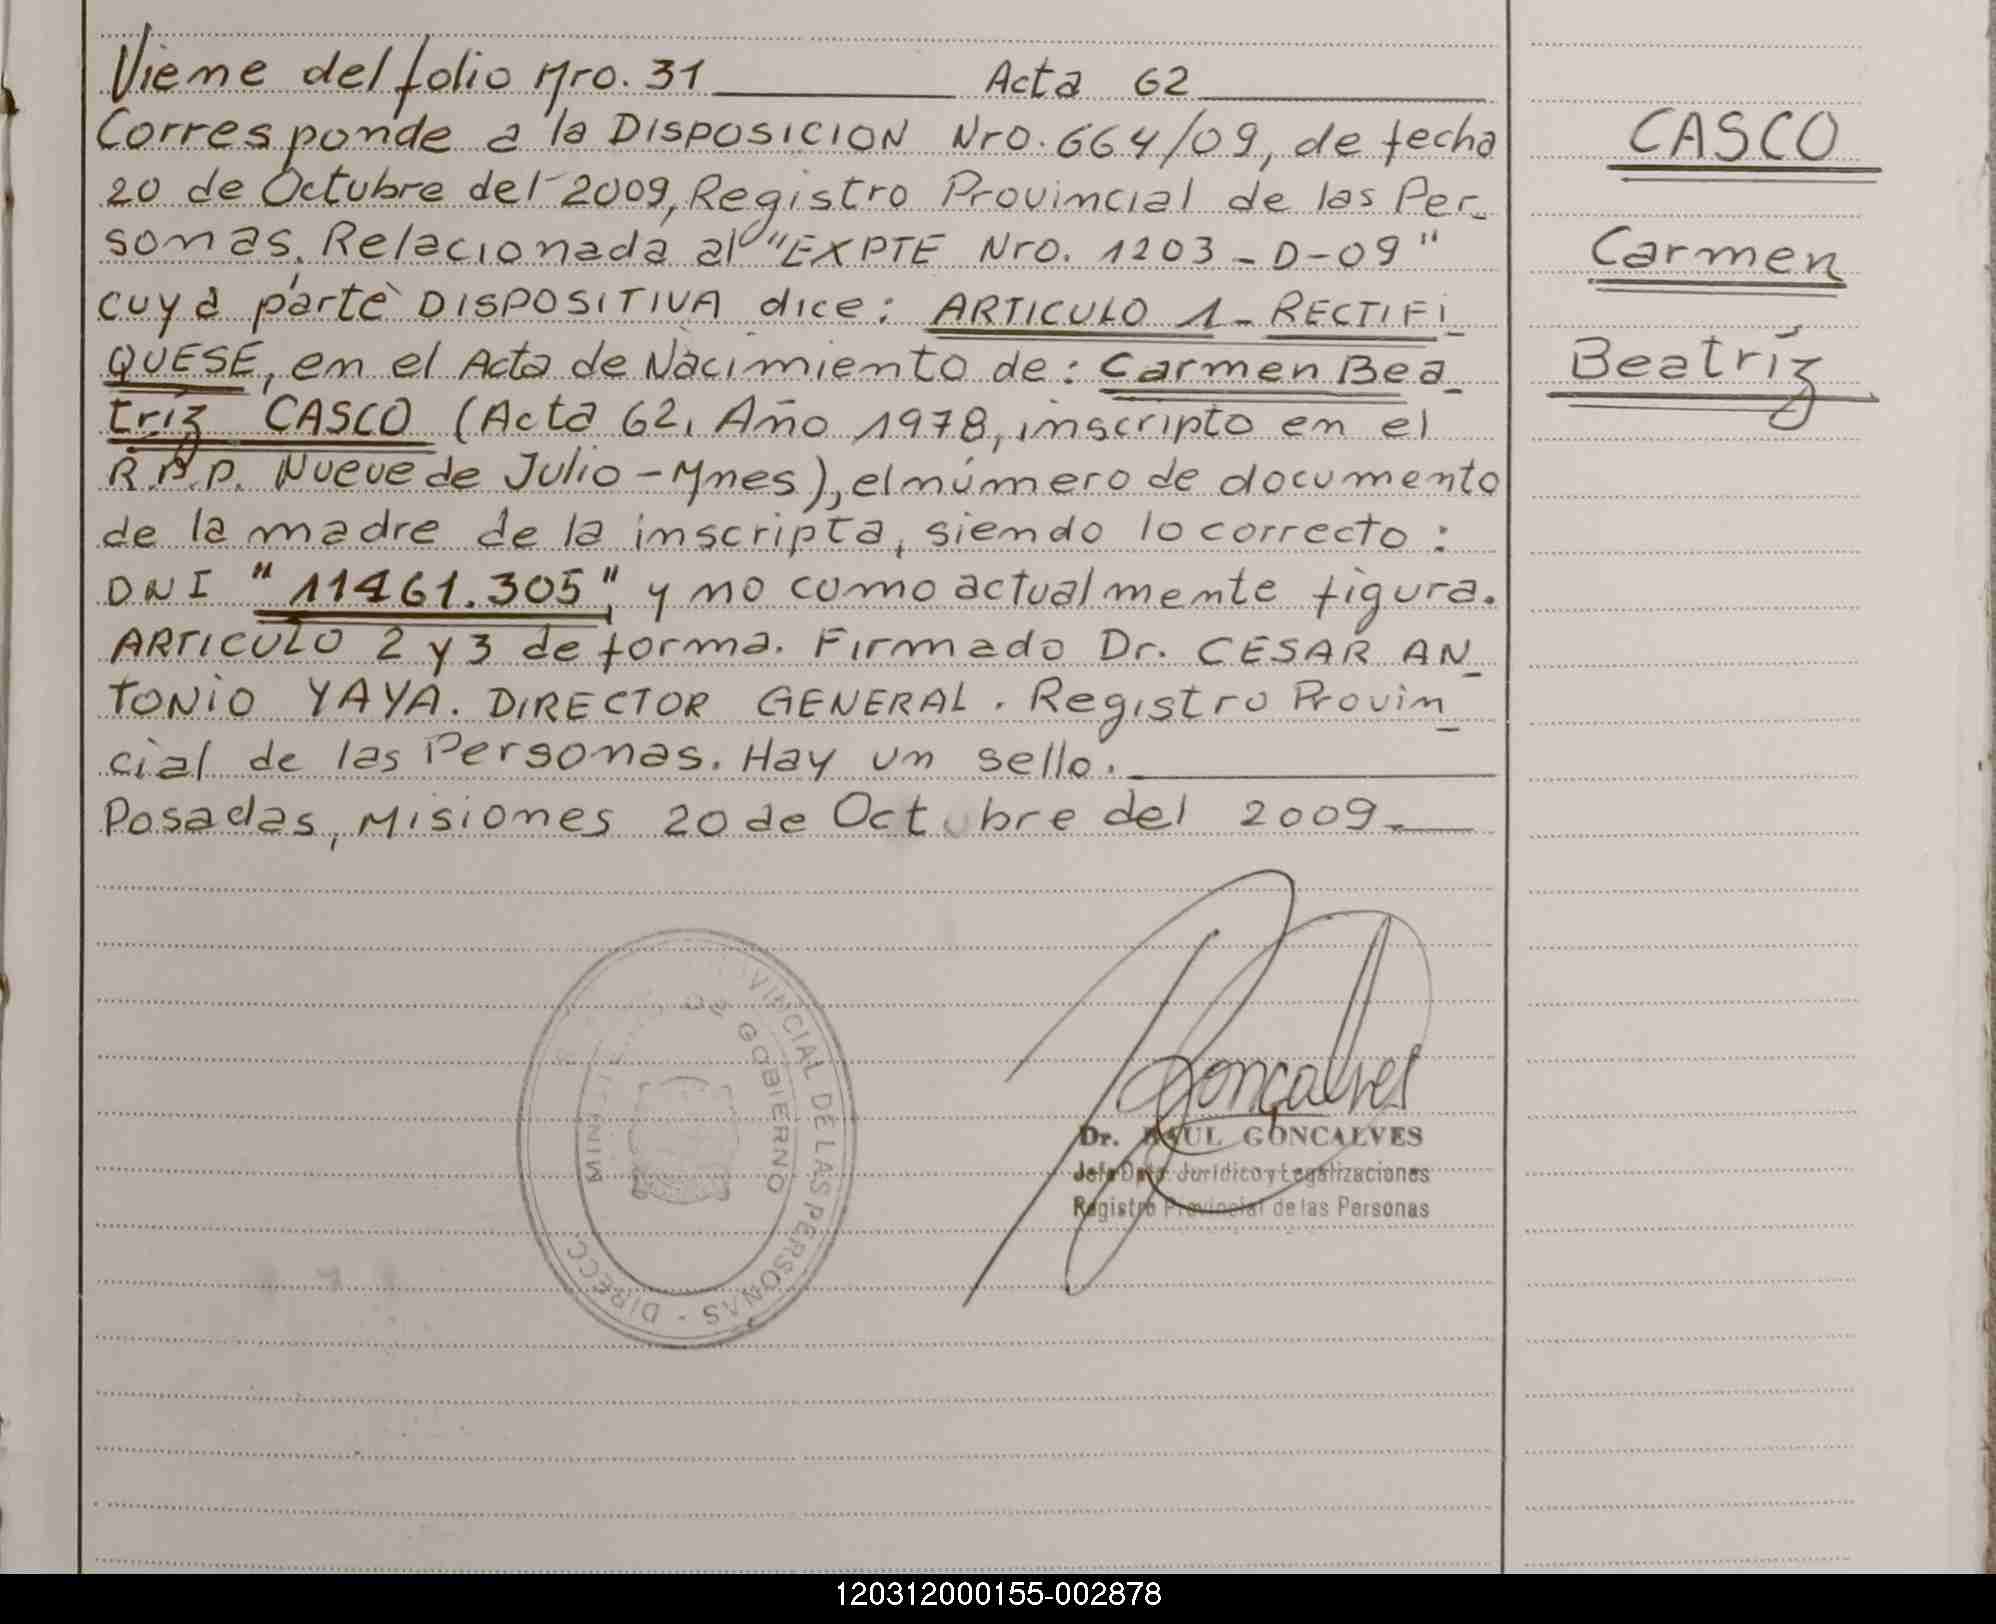 Viene del folio Nro. 31 Acta 62
Corresponde a la DISPOSICION Nro. 664/09, de fecha
20 de Octubre del 2009, Registro Provincial de las Per-
sonas. Relacionada al "EXPTE Nro. 1203-D-09"
cuya parte DISPOSITIVA dice: ARTICULO 1- RECTIFI-
QUESE, en el Acta de Nacimiento de: Carmen Bea-
tríz CASCO (Acta 62, Año 1978, inscripto en el
R.P.P. Nueve de Julio - Mnes), el número de documento
de la madre de la inscripta, siendo lo correcto:
DNI "11461.305", y no como actualmente figura.
ARTICULO 2 y 3 de forma. Firmado Dr. CESAR AN-
TONIO YAYA. DIRECTOR GENERAL. Registro Provin-
cial de las Personas. Hay un sello.
Posadas, Misiones 20 de Octubre del 2009.-
CASCO
Carmen
Beatríz
VINCIAL DE LAS PERSONAS - DIRECC
DE GOBIERNO
MINI
Gonçalves
Dr. RAUL GONCALVES
Jefe Dpto. Jurídico y Legalizaciones
Registro Provincial de las Personas
120312000155-002878